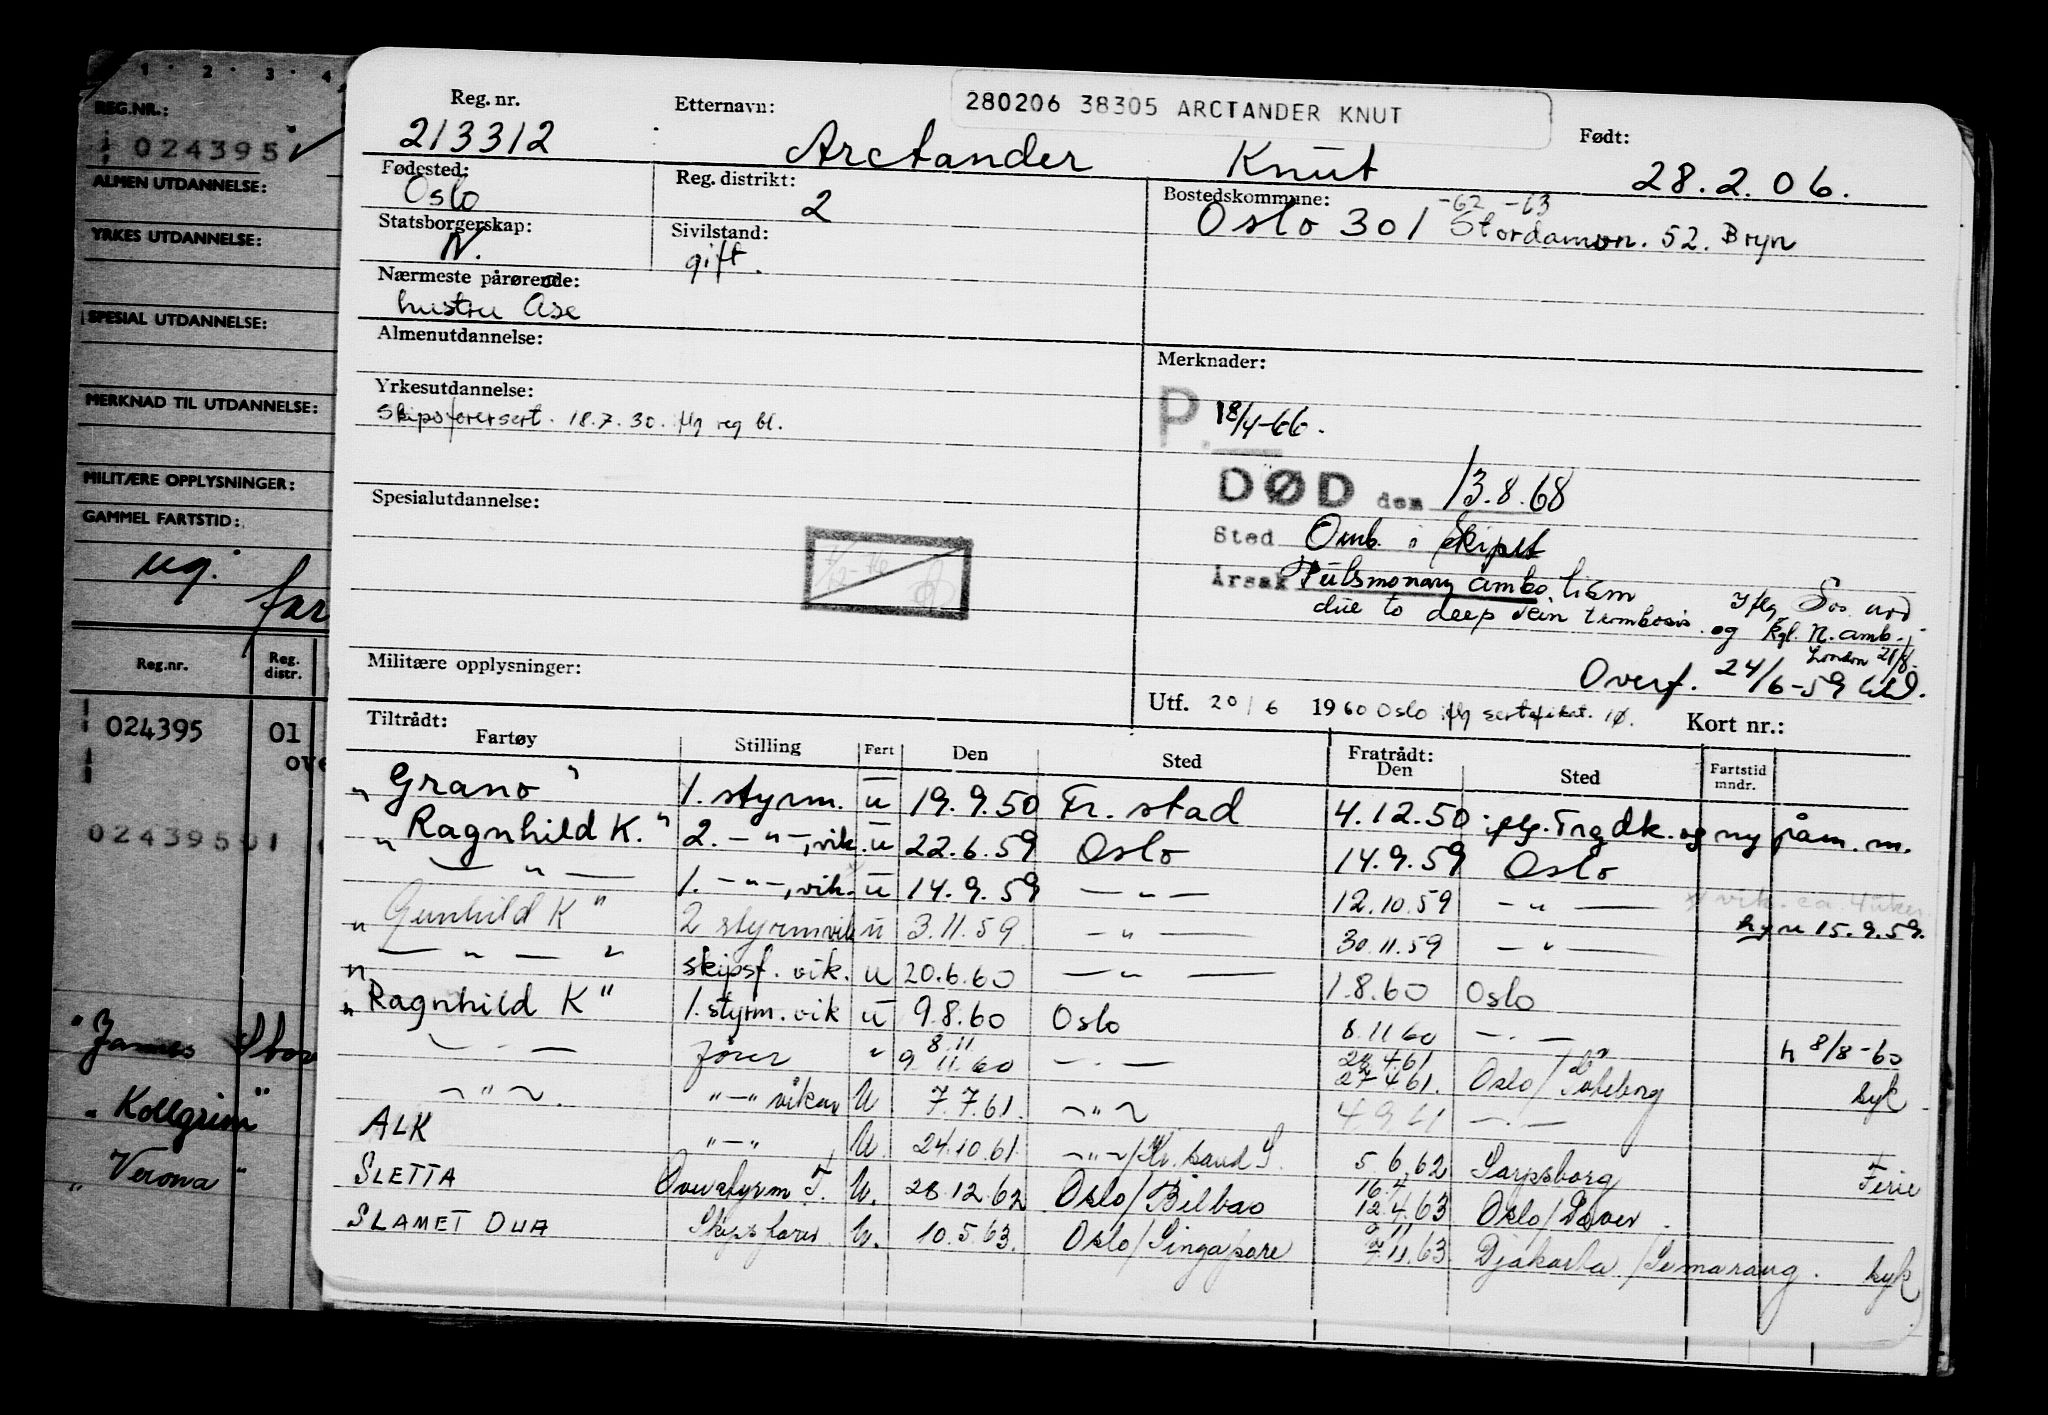 1 · 2 · 3 · 4
REG.NR.:
024395
ALMEN UTDANNELSE:
YRKES UTDANNELSE:
SPESIAL UTDANNELSE:
MERKNAD TIL UTDANNELSE:
MILITÆRE OPPLYSNINGER:
GAMMEL FARTSTID:
ug.
far
Reg.nr. Reg. distr.
024395 01
ove
02439501
"James
"Kollgrim"
"Verona"
280206 38305 ARCTANDER KNUT
Reg. nr. Etternavn: Født:
213312 Arctander Knut 28.2.06.
Fødested: Reg. distrikt: Bostedskommune:
Oslo 2 -62 -63
Oslo 301 Stordamvn. 52. Bryn
Statsborgerskap: Sivilstand:
N. gift.
Nærmeste pårørende:
hustru Åse
Almenutdannelse: Merknader:
Yrkesutdannelse:
Skipsførersert. 18.7.30. flg reg bl.
P. 18/4-66.
DØD den 13.8.68
Spesialutdannelse:
Sted Omb. i skipet
Årsak Pulsmonary ambolism
due to deep vein trombosis.
og kgl. N. amb. i
London 21/8.
Overf. 24/6-59
Militære opplysninger:
Utf. 20/6 1960 Oslo flg sertifikat. Kort nr.:
Tiltrådt: Fratrådt:
Fartøy Stilling Fart Den Sted Den Sted Fartstid mndr.
"Grano" 1. styrm. u 19.9.50 Fr. stad 4.12.50 og ny påm. m.
"Ragnhild K." 2. -"-, vik. u 22.6.59 Oslo 14.9.59 Oslo
— " — 1. -"-, vik. u 14.9.59 -"- 12.10.59 -"- vik. ca. 4 uker
hyre 15.9.59.
"Gunhild K" 2 styrm vik u 3.11.59 -"- 30.11.59 -"-
— " — " skipsf. vik. u 20.6.60 -"- 1.8.60 Oslo
"Ragnhild K" 1. styrm. vik u 9.8.60 Oslo 8.11 60 -.- h 8/8-60
- . - fører " 8.11
9.11.60 -.- 28.4.61
27 4 61. Oslo/Gøteborg syk
-"- . "-" vikar U 7.7.61. -"- 4 9 61 -.-
ALK "-" U. 24.10.61. -"-/Kr. sand S. 5.6.62 Sarpsborg Ferie
SLETTA Overstyrm F. U. 28.12.62 Oslo/Bilbao 16.4
12.4.63 Oslo/Dover.
SLAMET DUA Skipsfører U. 10.5.63. Oslo/Singapore 9 11
7.11.63 Djakarta/Semarang. syk